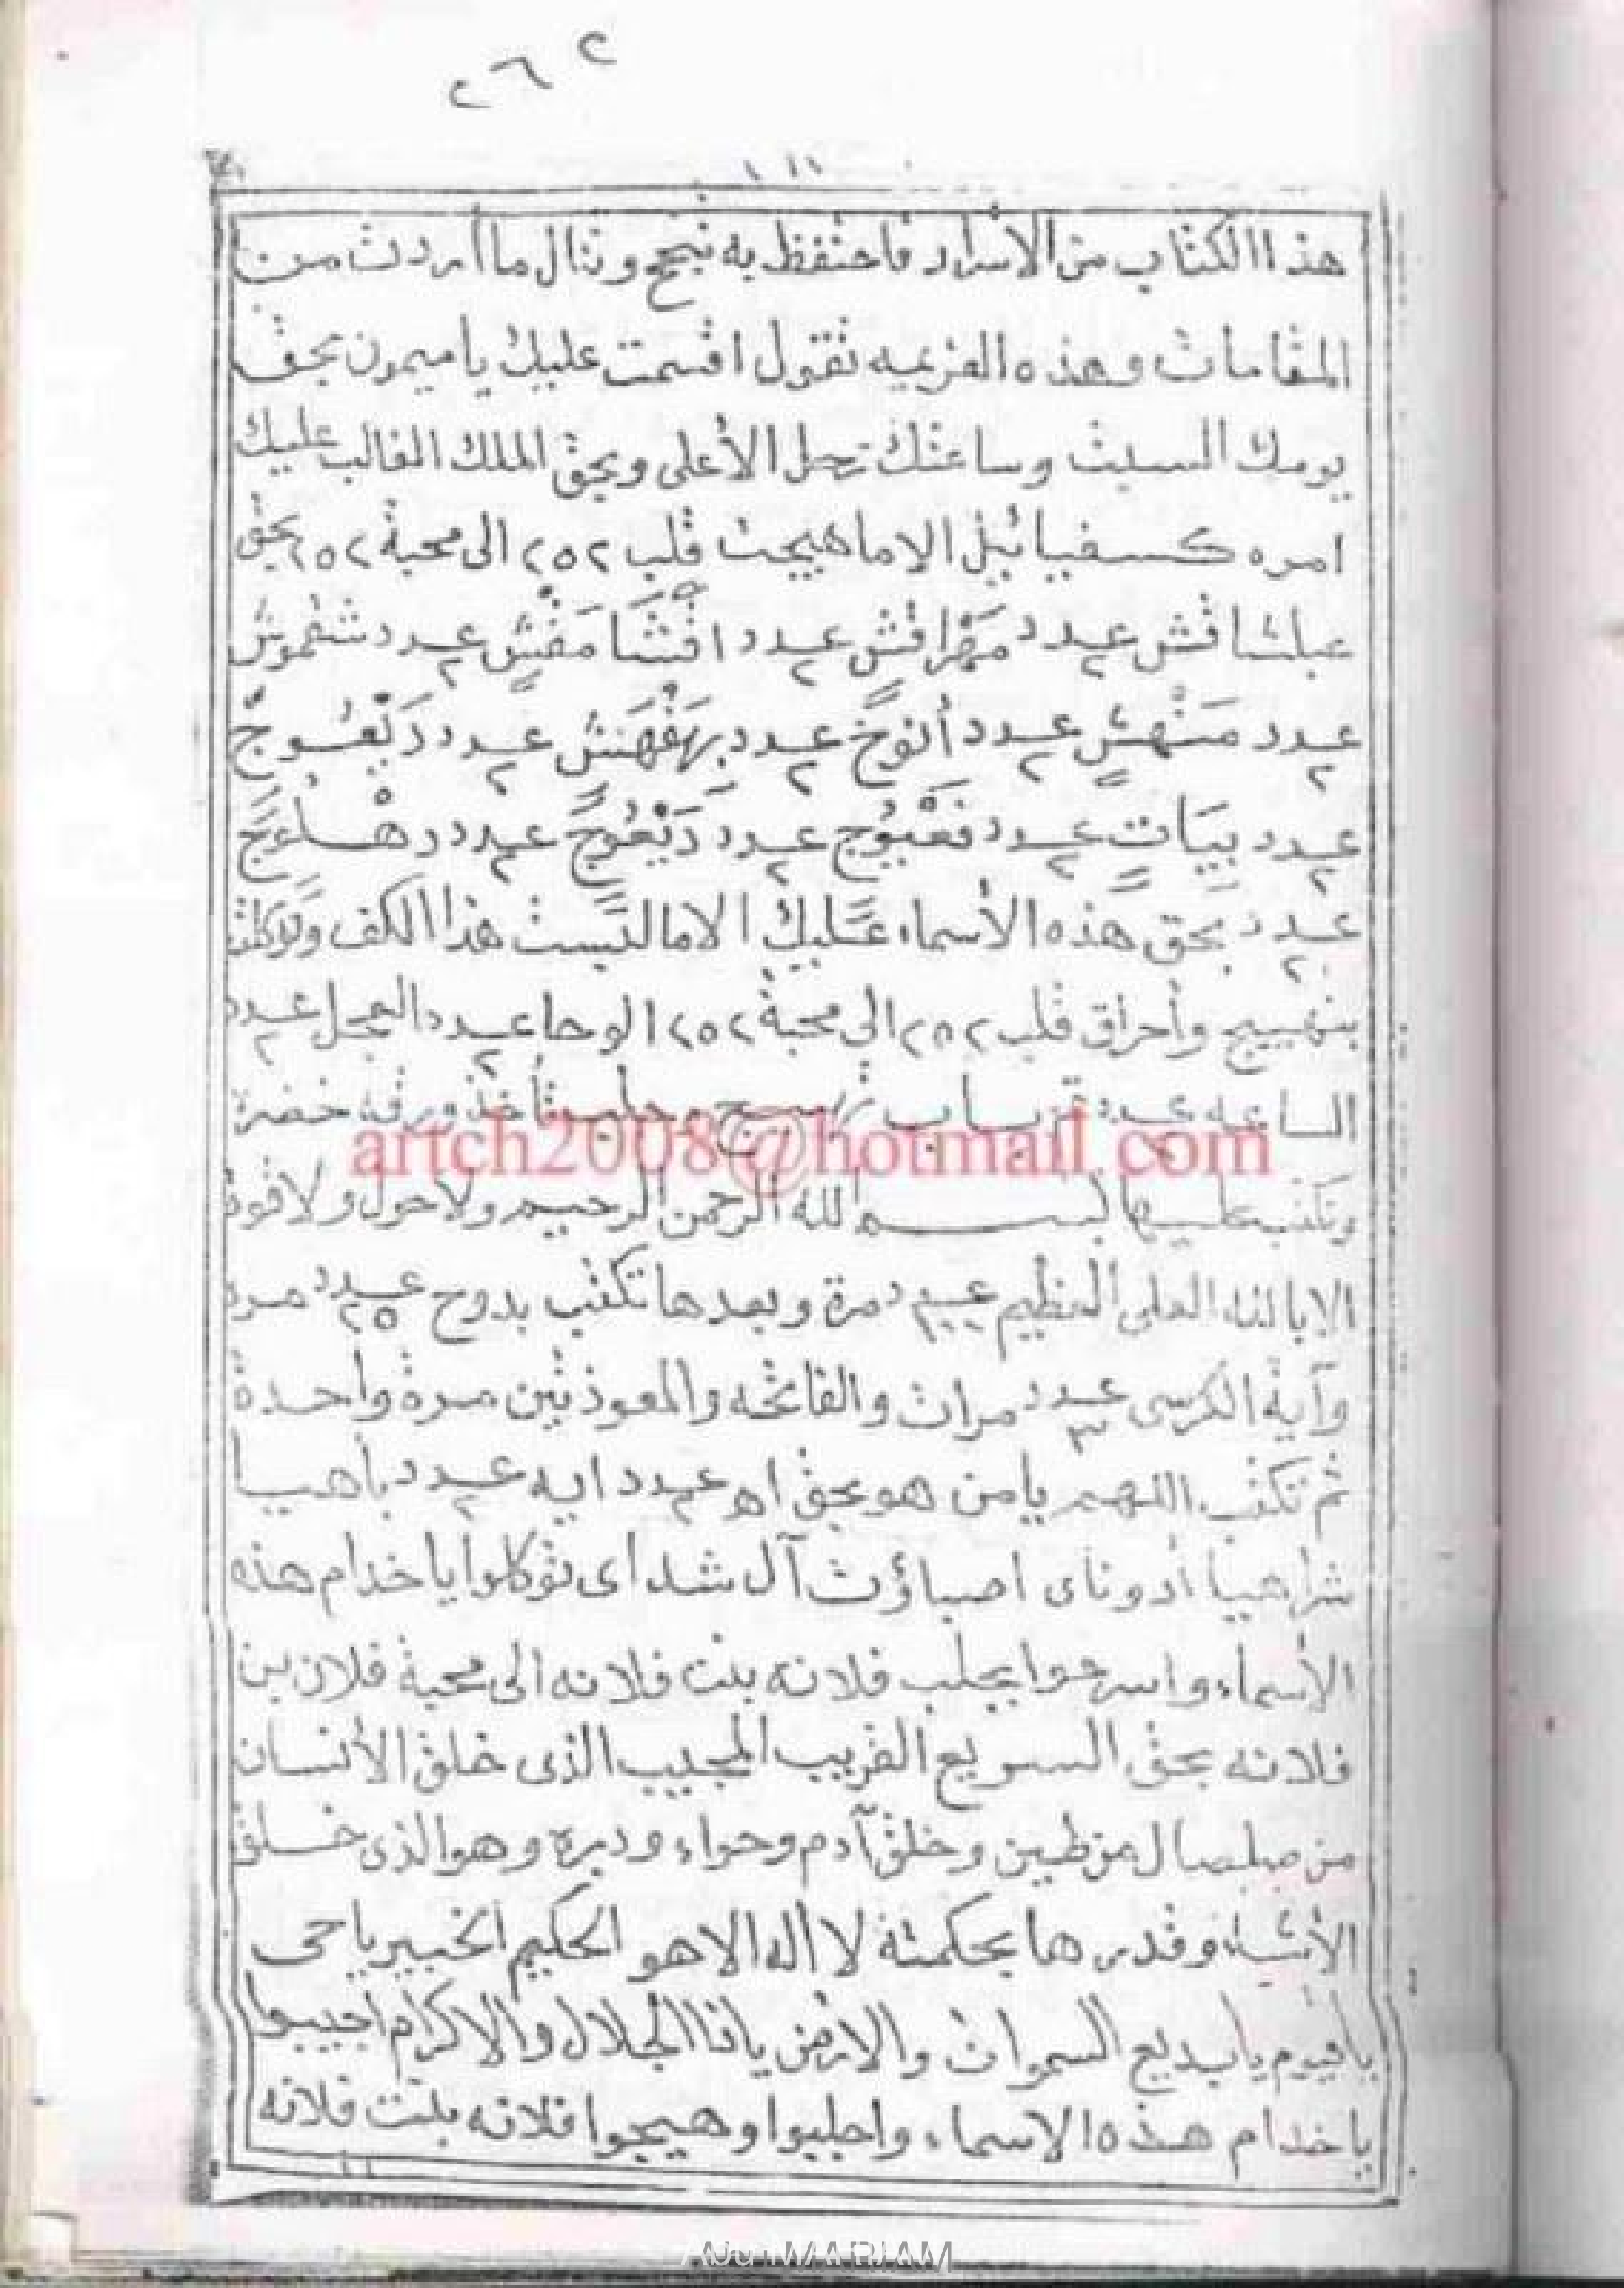 ٢٦٢
هذا الكتاب من الأسرار فاحتفظ به تنجح وتنال ما أردت من
المقامات وهذه العزيمه تقول اقسمت عليك يا ميمون بحق
يومك السبت وساعتك زحل الأعلى وبحق الملك الغالب عليك
امره كسفيائيل الاما هيجت قلب ٢٥٢ الى محبة ٢٥٢ بحق
عدد ٢ عدد ٢ عدد ٢
عدد ٢ عدد ٢ أنوخ عدد ٢ عدد ٢
عدد ٢ عدد ٢ عدد ٢ عدد ٢
عدد ٢ بحق هذه الأسماء عليك الاما لبست هذا الكف وتوكلت
بتهييج وأحراق قلب ٢٥٢ الى محبة ٢٥٢ الوحا عدد ٢ العجل عدد ٢
الساعه عدد ٢ باب تهييج وجلب تأخذ ورقة خضره
artch2008@hotmail.com
وتكتب عليها بسم الله الرحمن الرحيم ولا حول ولا قوة
الا بالله العلى العظيم عدد مرة وبعدها تكتب بدوح عدد ٢٥ مره
وآية الكرسى عدد ٣ مرات والفاتحه والمعوذتين مرة واحدة
ثم تكتب اللهم يامن هو بحق اه عدد ٢ ايه عدد ٢ باهيا
شراهيا أدوناى اصباؤت آل شداى توكلوا يا خدام هذه
الأسماء واسرحوا بجلب فلانه بنت فلانه الى محبة فلان بن
فلانه بحق السريع القريب المجيب الذى خلق الأنسان
من صلصال من طين وخلق آدم وحواء ودبره وهو الذى خلق
الأشياء وقدرها بحكمتة لا اله الا هو الحكيم الخبير يا حى
يا قيوم يا بديع السموات والارض يا ذا الجلال والاكرام اجيبوا
يا خدام هذه الاسماء واجلبوا وهيجوا فلانه بنت فلانه